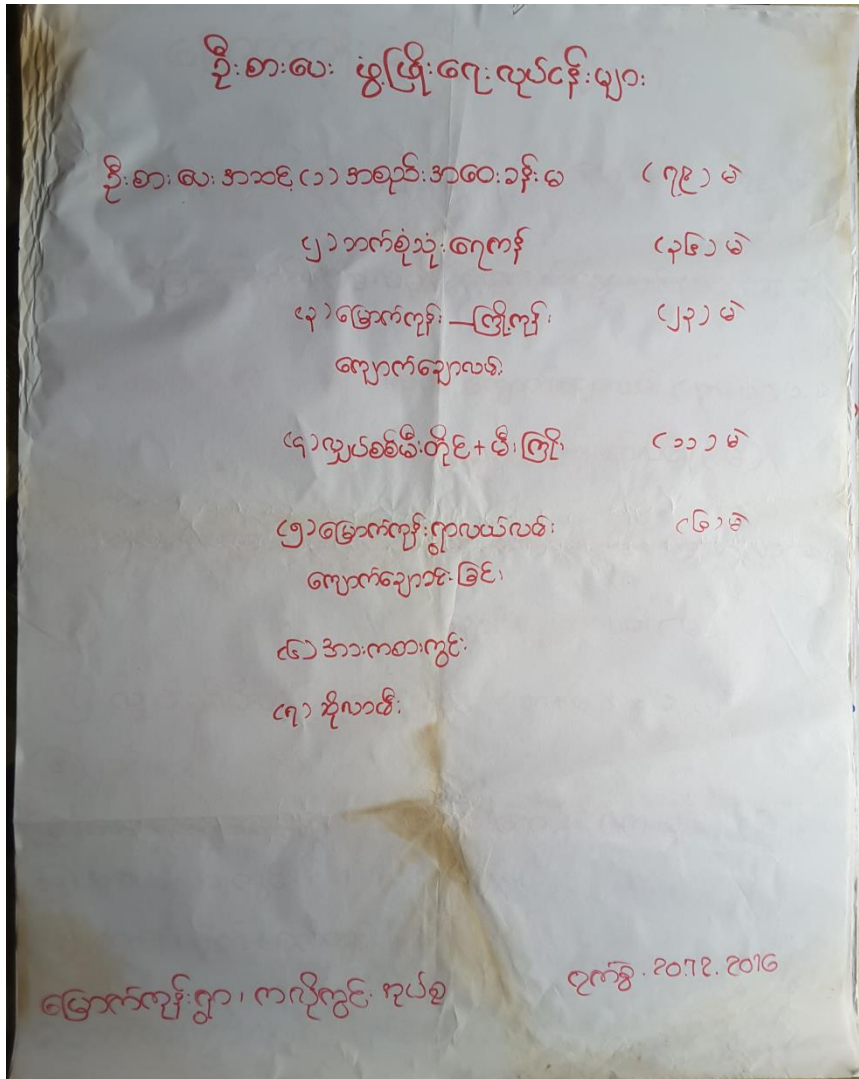 ဦးစားပေး ဖွံ့ဖြိုးရေးလုပ်ငန်းများ
ဦးစားပေးအဆင့် (၁) အစည်းအဝေးခန်းမ (၇၉) မဲ
(၂) ဘက်စုံသုံးရေကန် (၃၆) မဲ
(၃) မြောက်ကုန်း – ကြို့ကုန်း (၂၃) မဲ
ကျောက်ချောလမ်း
(၄) လျှပ်စစ်မီးတိုင် + မီးကြိုး (၁၁) မဲ
(၅) မြောက်ကုန်းရွာလယ်လမ်း (၆) မဲ
ကျောက်ချောခင်းခြင်း
(၆) အားကစားကွင်း
(၇) ဆိုလာမီး
မြောက်ကုန်းရွာ၊ ကလိုကွင်း အုပ်စု
ရက်စွဲ . 20.12.2016